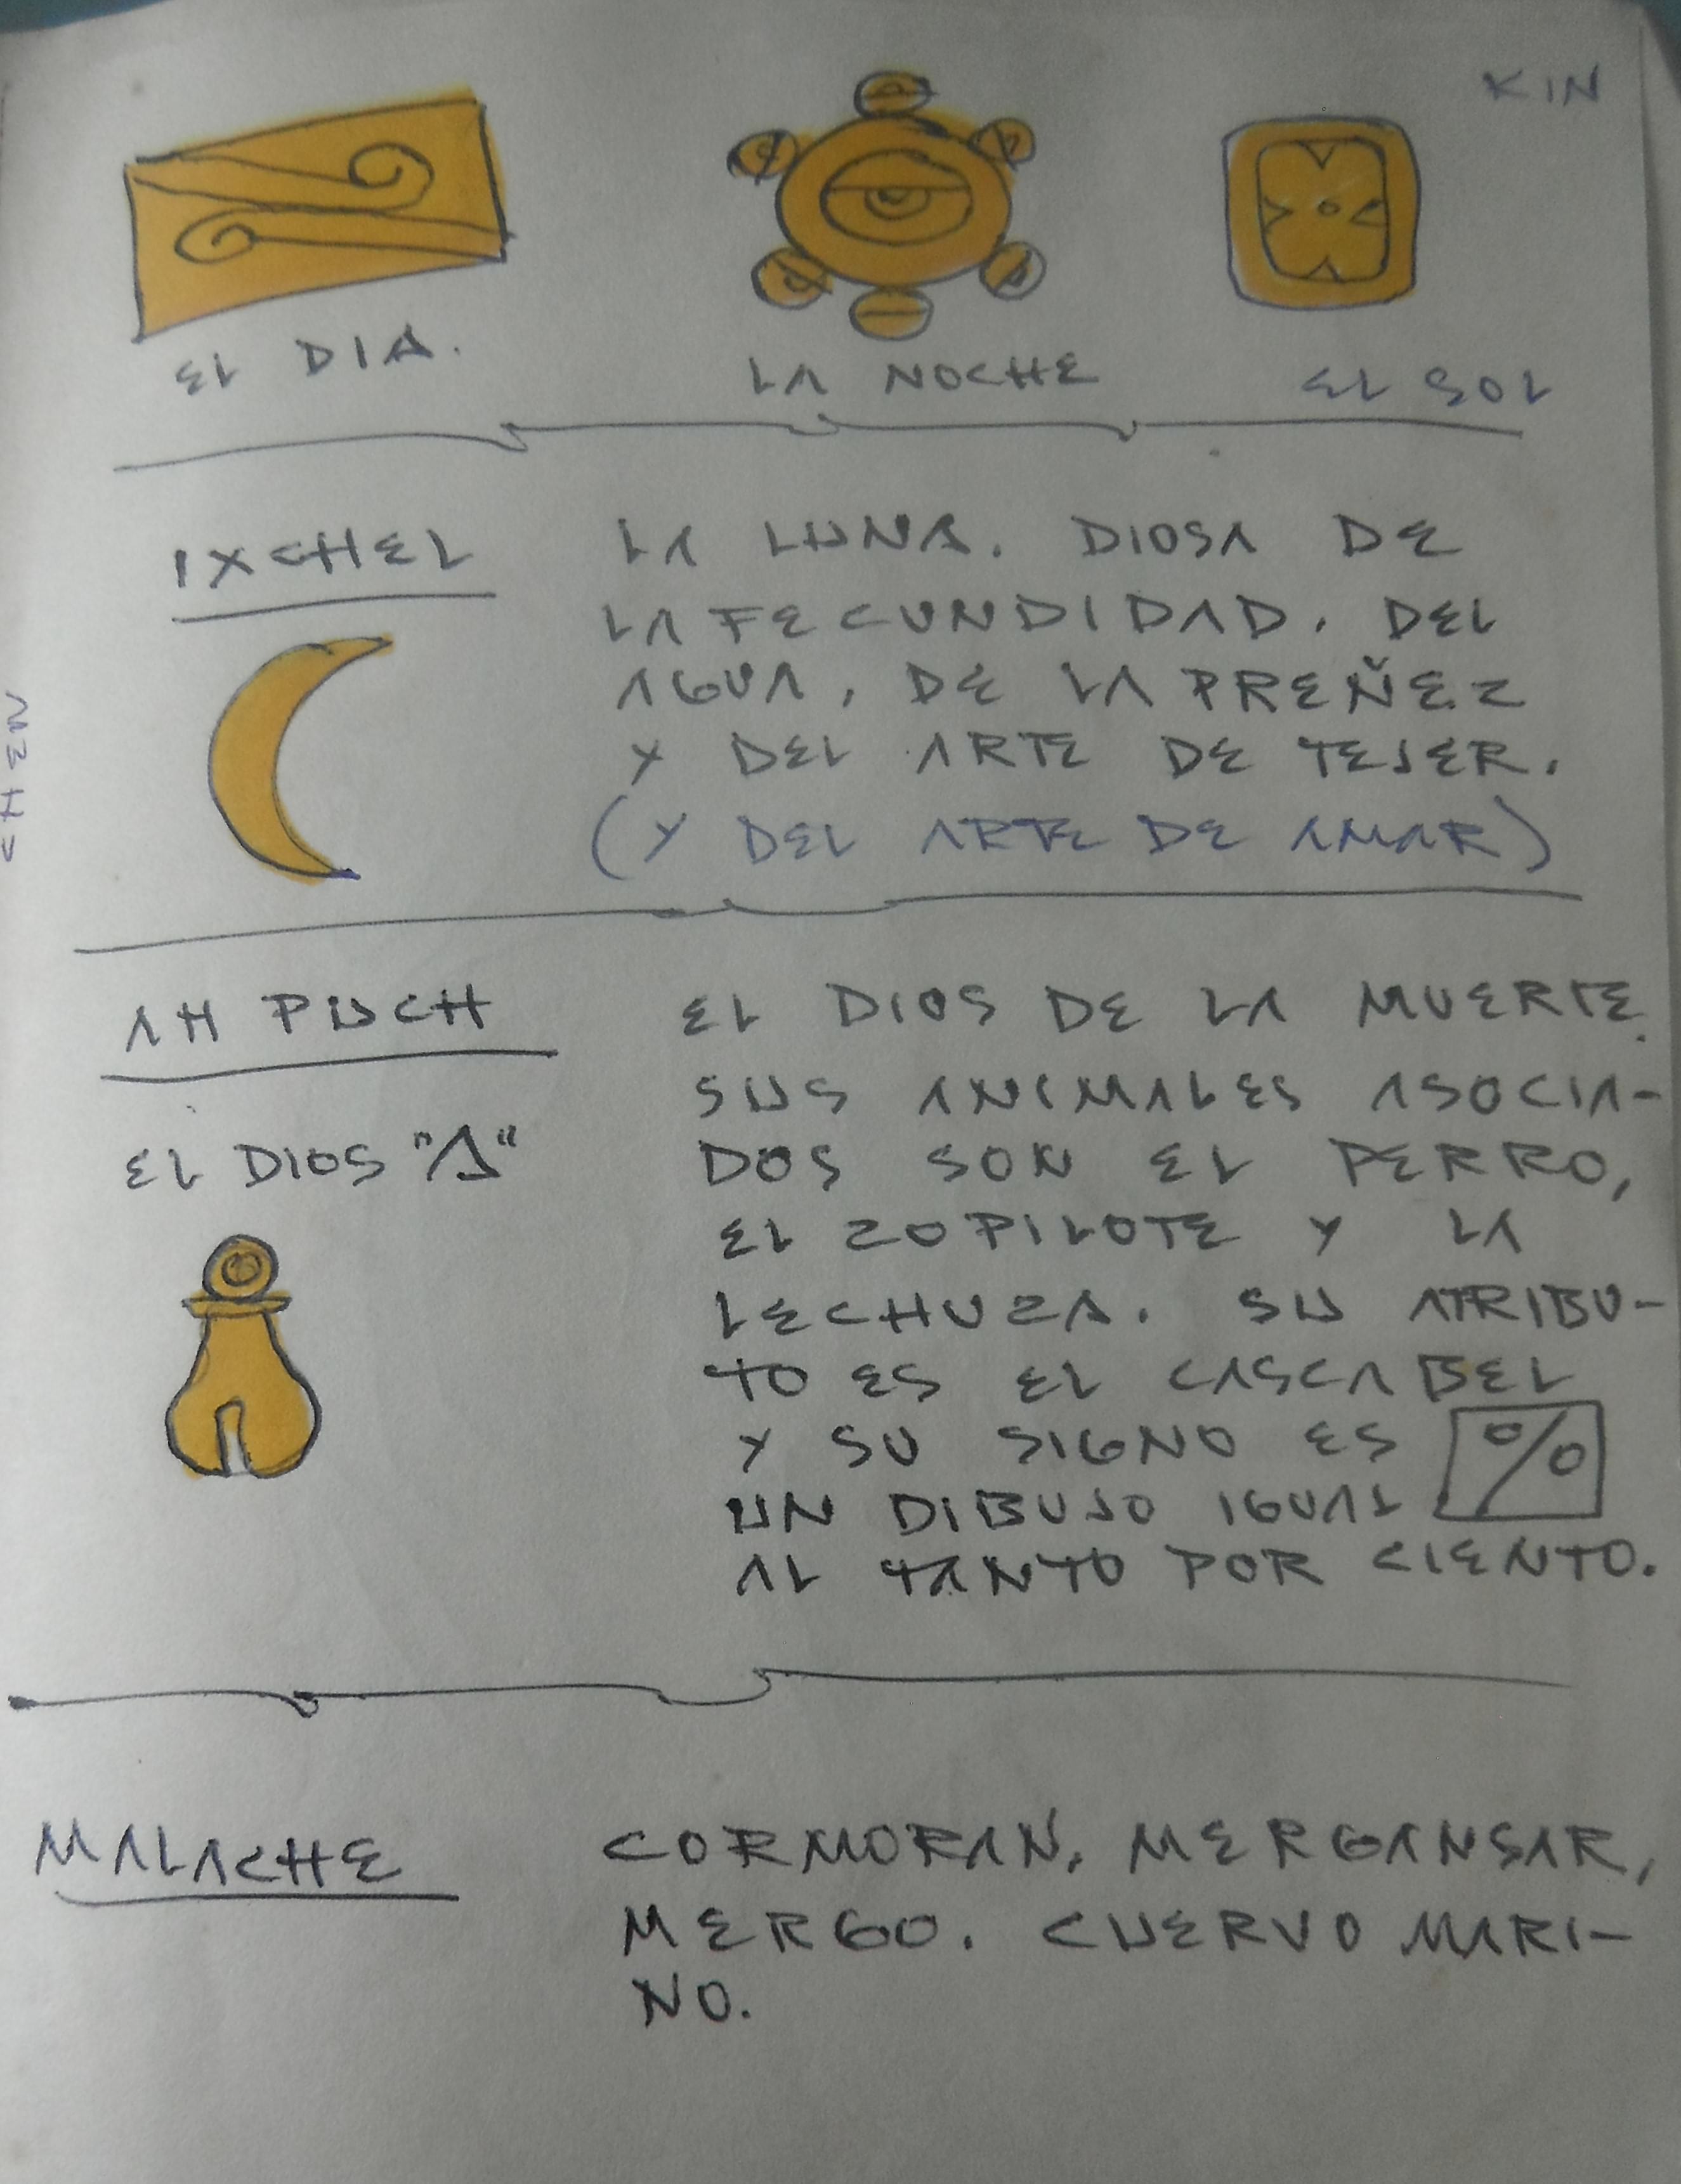 KIN
EL DIA.
LA NOCHE
EL SOL
IXCHEL
LA LUNA. DIOSA DE
LA FECUNDIDAD. DEL
AGUA, DE LA PREÑEZ
Y DEL ARTE DE TEJER.
(Y DEL ARTE DE AMAR)
AH PUCH
EL DIOS "A"
EL DIOS DE LA MUERTE.
SUS ANIMALES ASOCIA-
DOS SON EL PERRO,
EL ZOPILOTE Y LA
LECHUZA. SU ATRIBU-
TO ES EL CASCABEL
Y SU SIGNO ES %
UN DIBUJO IGUAL
AL TANTO POR CIENTO.
MALACHE
CORMORAN, MERGANSAR,
MERGO. CUERVO MARI-
NO.